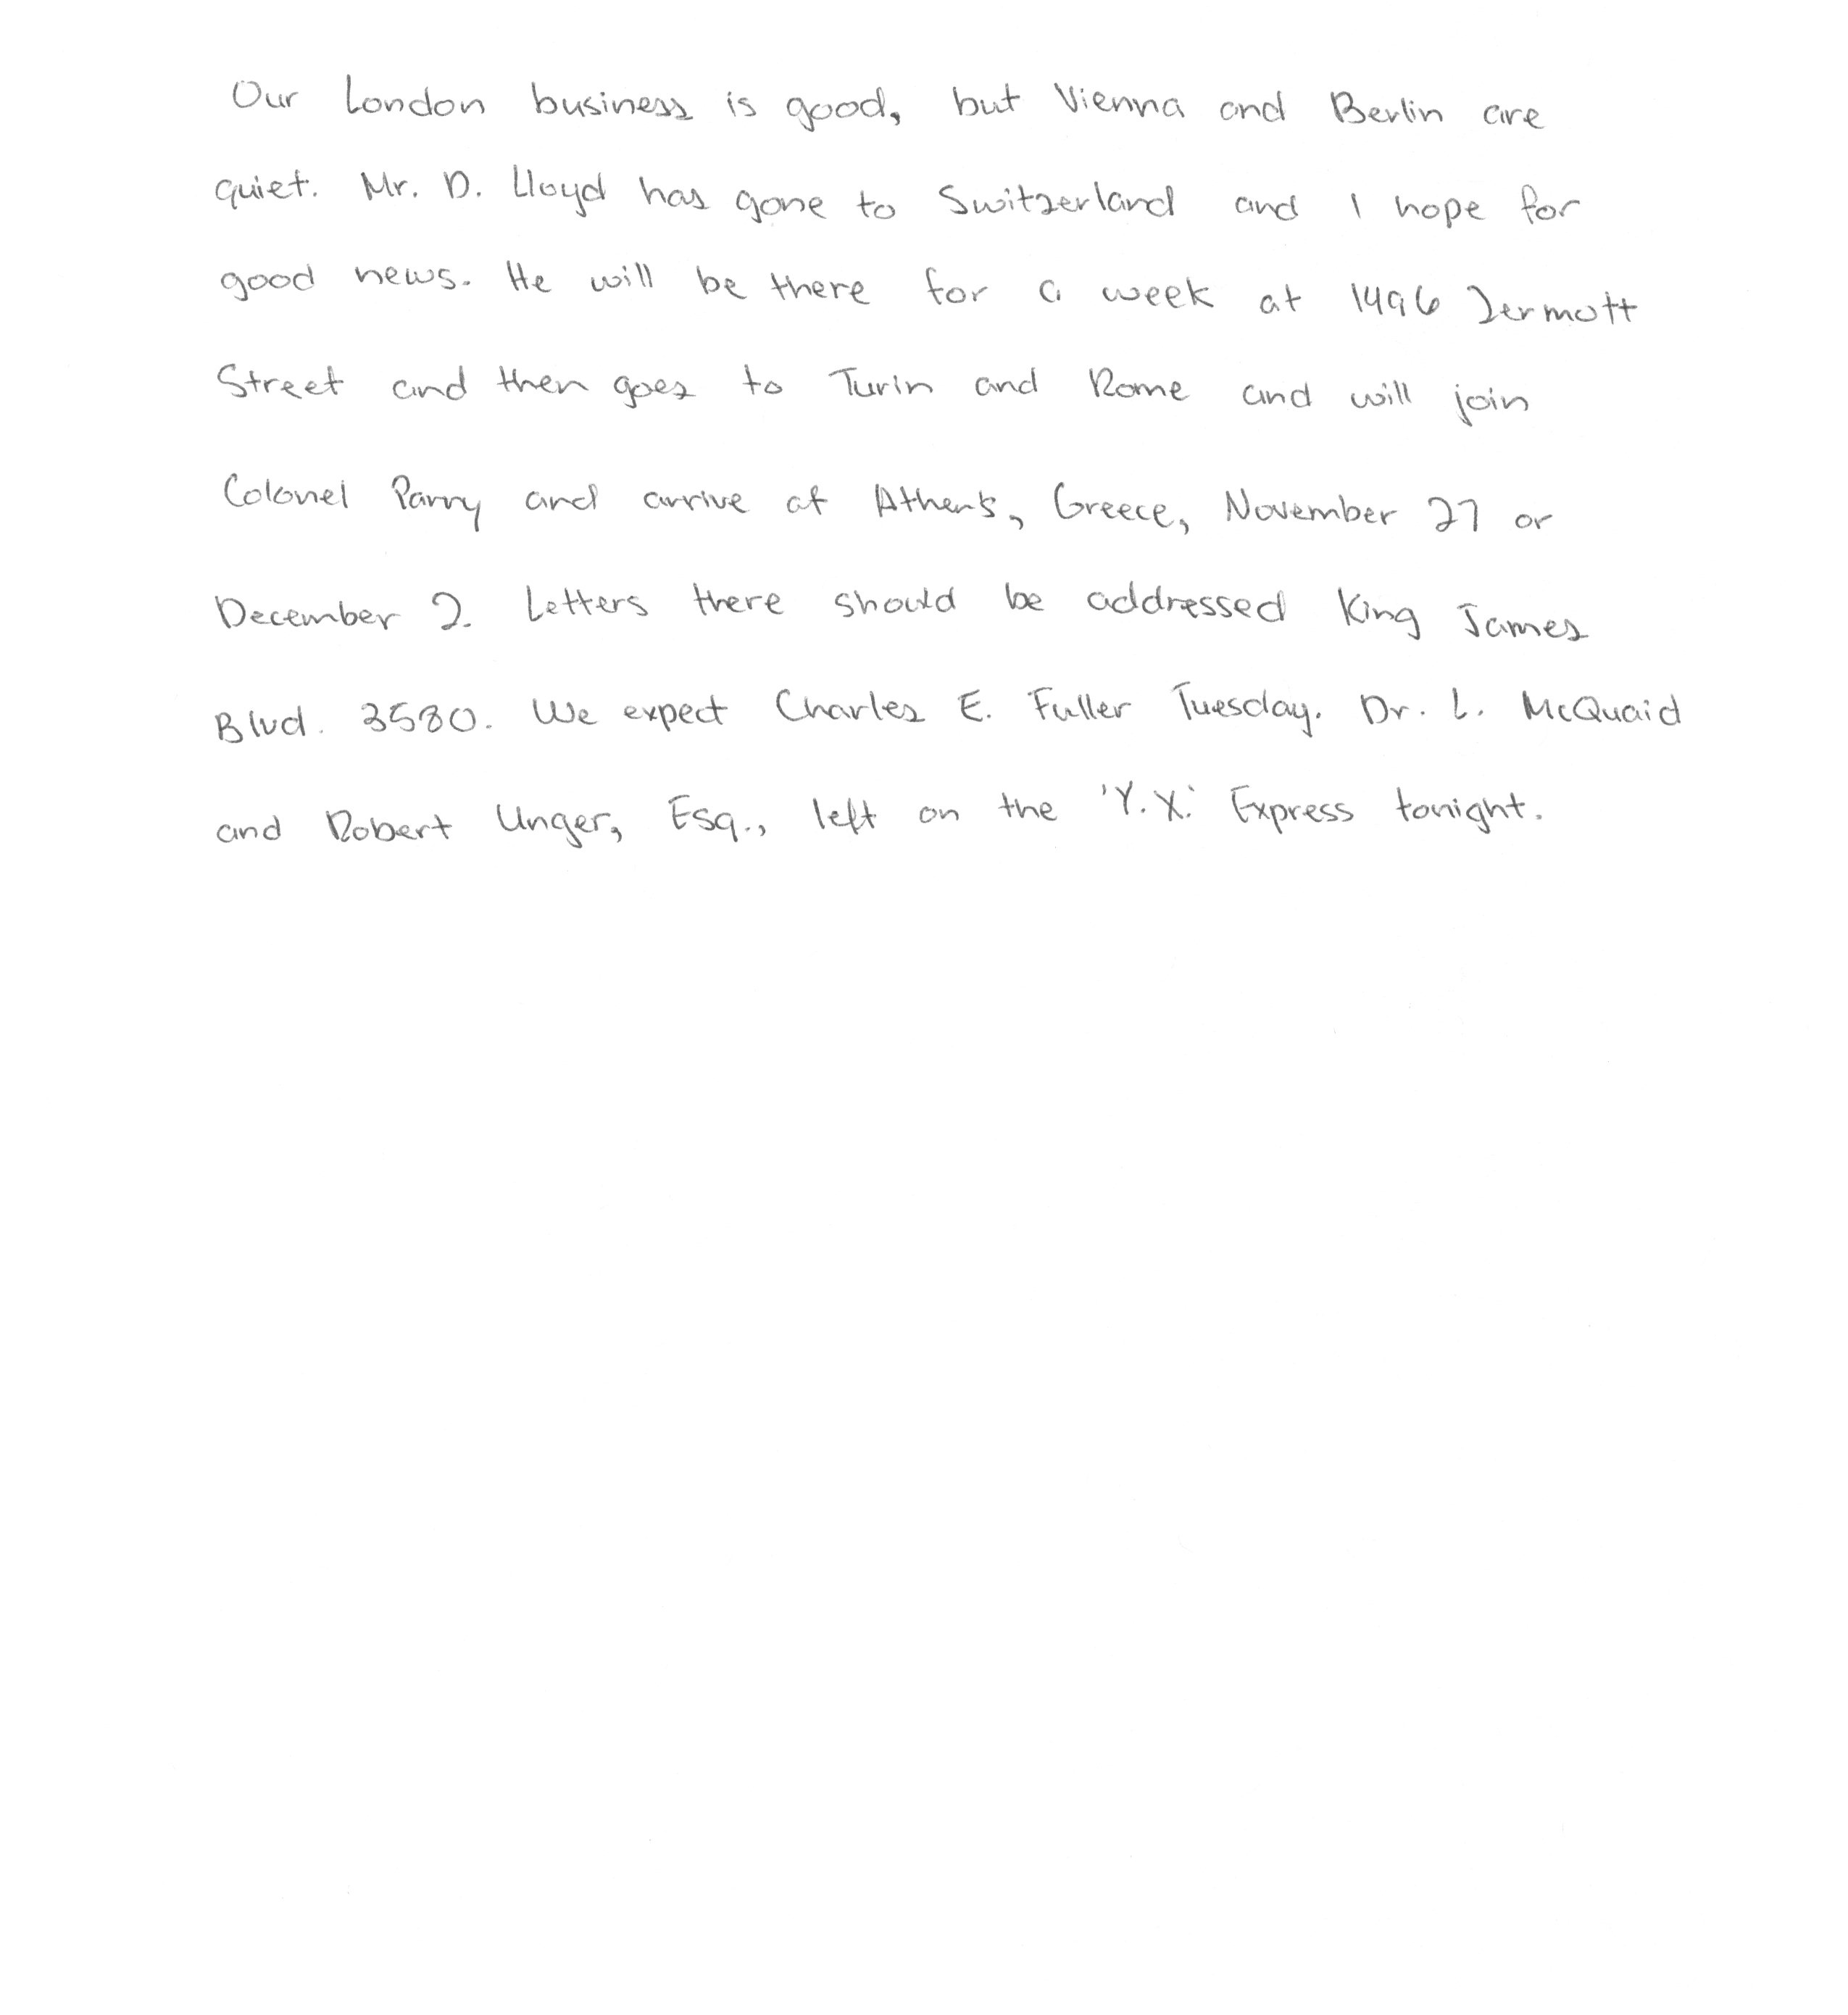 Our London business is good, but Vienna and Berlin are
quiet. Mr. D. Lloyd has gone to Switzerland and I hope for
good news. He will be there for a week at 1496 Zermott
Street and then goes to Turin and Rome and will join
Colonel Parry and arrive at Athens, Greece, November 27 or
December 2. Letters there should be addressed King James
Blvd. 3580. We expect Charles E. Fuller Tuesday. Dr. L. McQuaid
and Robert Unger, Esq., left on the 'Y.X.' Express tonight.